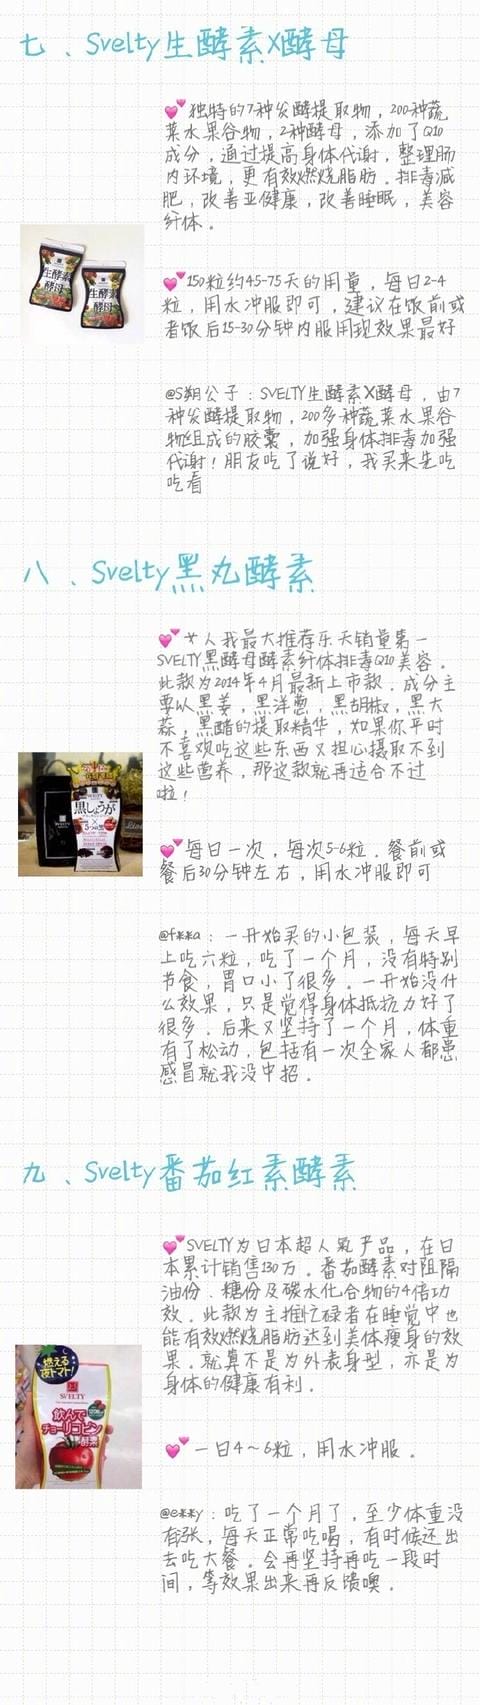 七、Svelty生酵素X酵母
💕独特的7种发酵提取物，200种蔬
菜水果谷物，2种酵母，添加了Q10
成分，通过提高身体代谢，整理肠
内环境，更有效燃烧脂肪。排毒减
肥，改善亚健康，改善睡眠，美容
纤体。
生酵素
酵母
生酵素
酵母
💕150粒约45-75天的用量，每日2-4
粒，用水冲服即可，建议在饭前或
者饭后15-30分钟内服用现效果最好
@S朔公子：SVELTY生酵素X酵母，由7
种发酵提取物，200多种蔬菜水果谷
物组成的胶囊，加强身体排毒加强
代谢！朋友吃了说好，我买来先吃
吃看
八、Svelty黑丸酵素
💕艾人我最大推荐乐天销量第一
SVELTY黑酵母酵素纤体排毒Q10美容。
此款为2014年4月最新上市款．成分主
要以黑姜，黑洋葱，黑胡椒，黑大
蒜，黑醋的提取精华，如果你平时
不喜欢吃这些东西又担心摄取不到
这些营养，那这款就再适合不过
啦！
SVELTY
黒しょうが
5つの黒
💕每日一次，每次5-6粒．餐前或
餐后30分钟左右，用水冲服即可
@f**a：一开始买的小包装，每天早
上吃六粒，吃了一个月，没有特别
节食，胃口小了很多。一开始没什
么效果，只是觉得身体抵抗力好了
很多．后来又坚持了一个月，体重
有了松动，包括有一次全家人都患
感冒就我没中招。
九、Svelty番茄红素酵素
💕SVELTY为日本超人氣产品，在日
本累计销售130万。番茄酵素对阻隔
油份、糖份及碳水化合物的4倍功
效。此款为主推忙碌者在睡觉中也
能有效燃烧脂肪达到美体瘦身的效
果。就算不是为外表身型，亦是为
身体的健康有利。
燃える
夜トマト!
SVELTY
飲んで
チョーリコピン
酵素
💕一日4～6粒，用水冲服。
@e**y：吃了一个月了，至少体重没
有涨，每天正常吃喝，有时候还出
去吃大餐。会再坚持再吃一段时
间，等效果出来再反馈噢。